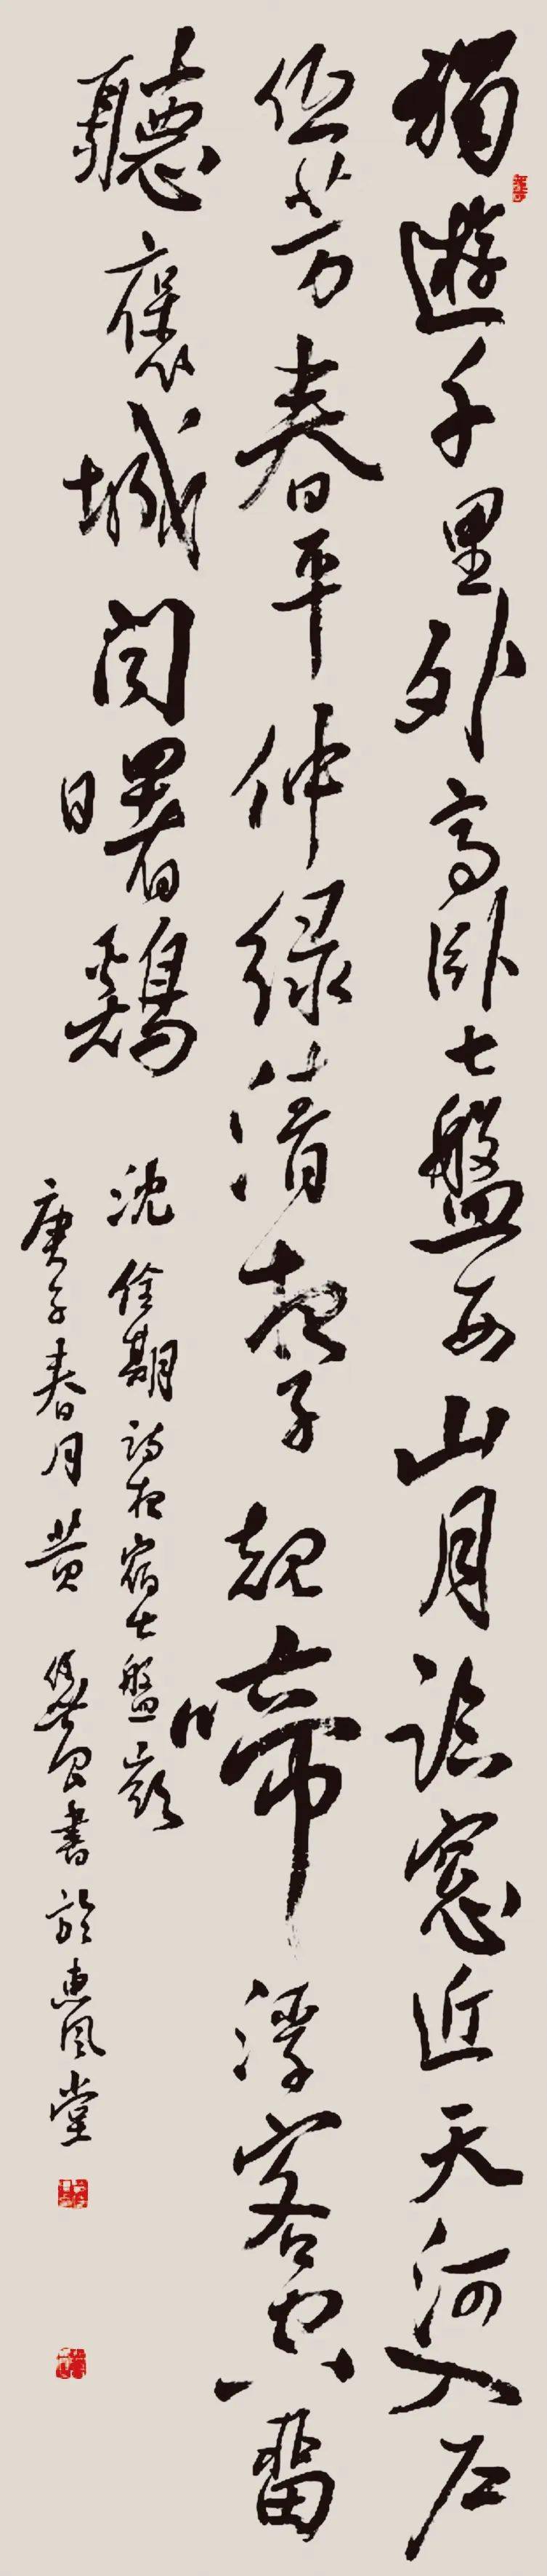 獨遊千里外高臥七盤西山月臨窓近天河入戶
低芳春平仲緑清夜子規啼浮客空留
聽褒城聞曙鷄
沈佺期詩夜宿七盤嶺
庚子春月黄書於惠風堂